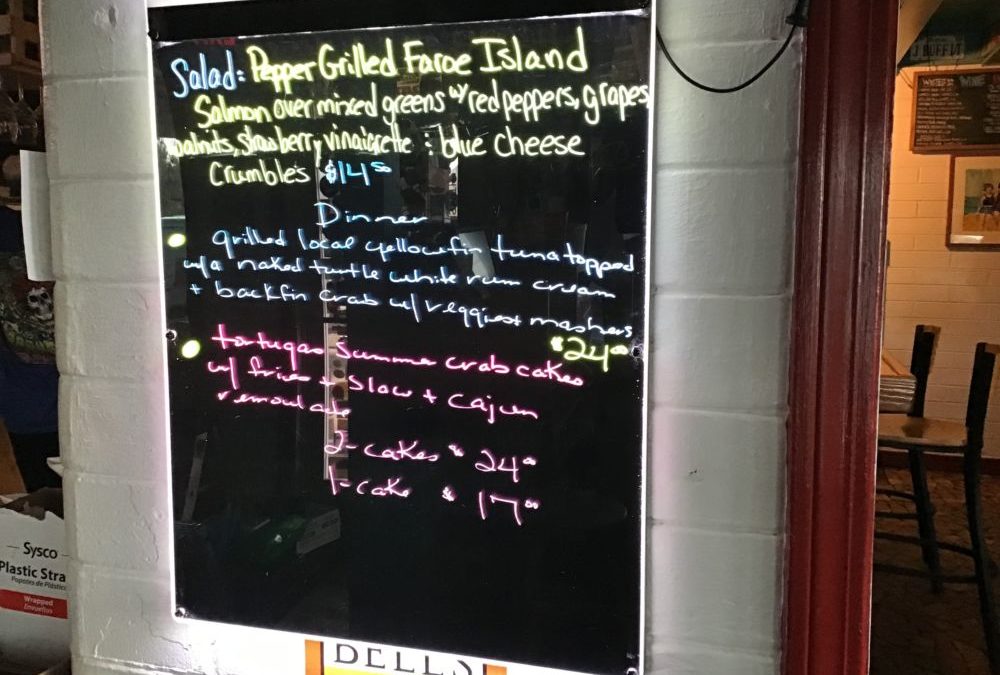 Salad: Pepper Grilled Faroe Island
Salmon over mixed greens w/ red peppers, grapes,
walnuts, strawberry vinaigrette : blue cheese
Crumbles $14.50
Dinner
grilled local yellowfin tuna topped
w/a naked turtle white rum cream
+ backfin crab w/ veggies + mashers
$24.00
tortugas summer crab cakes
w/ fries + slaw + cajun
remoulade
2-cakes $24.00
1-cake $17.00
BELLS
Sysco
Plastic Stra
Popotes de Plástic
Wrapped
Envueltos